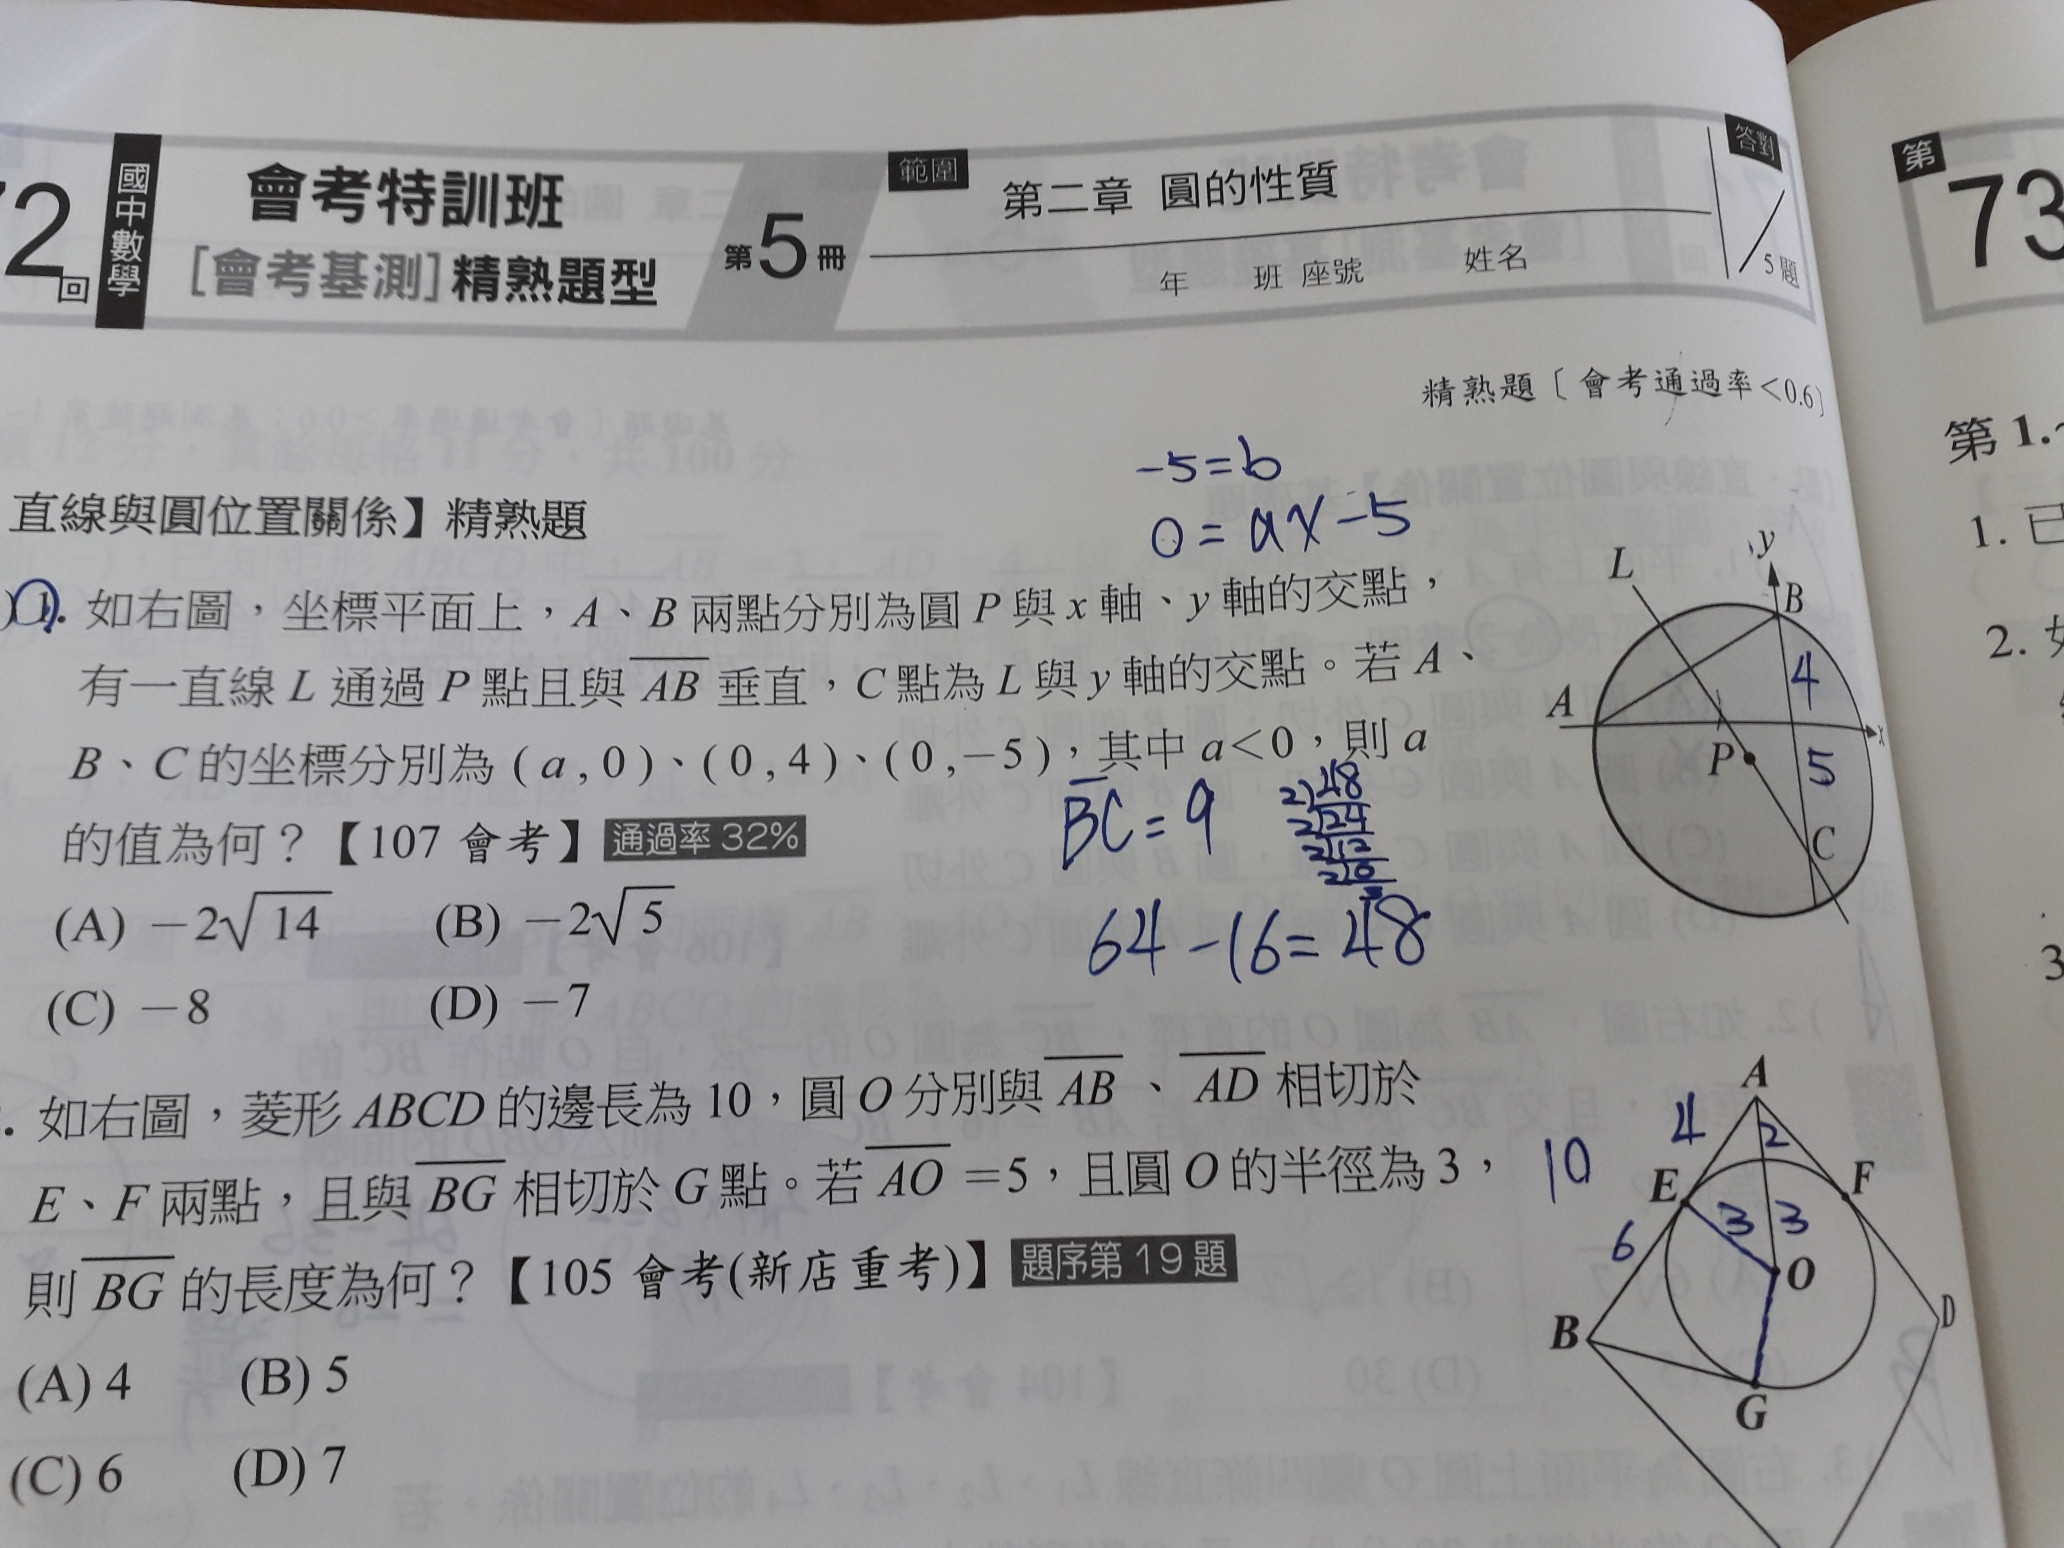 2回
國中數學
會考特訓班
[會考基測]精熟題型
第5冊
範圍
第二章 圓的性質
年 班 座號 姓名
答對
/5題
第73
精熟題〔會考通過率<0.6〕
-5=b
0=ax-5
直線與圓位置關係】精熟題
)1. 如右圖,坐標平面上,A、B 兩點分別為圓 P 與 x 軸、y 軸的交點,
有一直線 L 通過 P 點且與 AB 垂直,C 點為 L 與 y 軸的交點。若 A、
B、C 的坐標分別為 (a,0)、(0,4)、(0,-5),其中 a<0,則 a
的值為何?【107 會考】通過率 32%
BC=9
2)48
2)24
2)12
2)6
3
64-16=48
(A) -2√14 (B) -2√5
(C) -8 (D) -7
L
y
B
4
A
x
P
5
C
. 如右圖,菱形 ABCD 的邊長為 10,圓 O 分別與 AB、AD 相切於
E、F 兩點,且與 BG 相切於 G 點。若 AO =5,且圓 O 的半徑為 3,
則 BG 的長度為何?【105 會考(新店重考)】題序第 19 題
(A) 4 (B) 5
(C) 6 (D) 7
A
4
2
10
E
F
3
3
6
O
B
D
G
第 1.
1. 已
2. 如
3